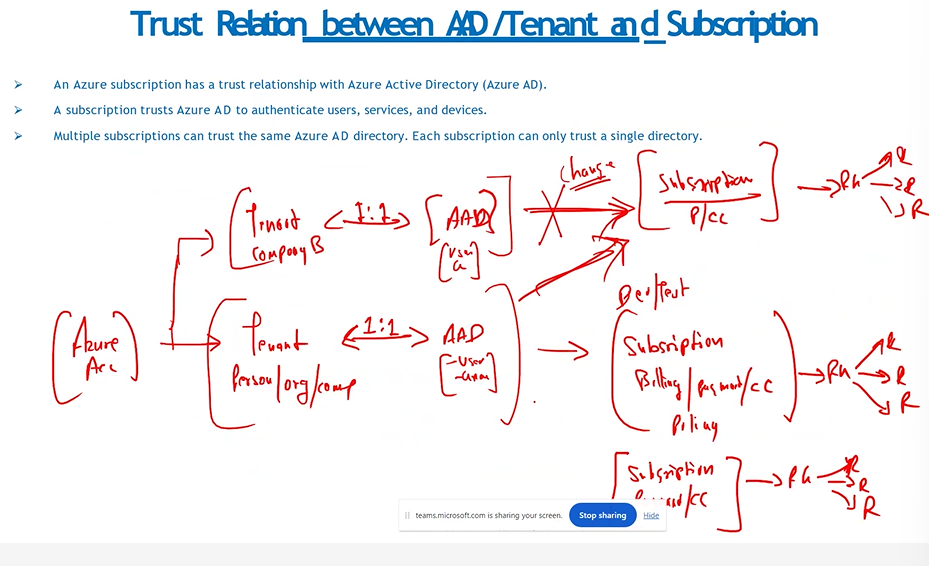 Trust Relation between AAD/Tenant and Subscription
An Azure subscription has a trust relationship with Azure Active Directory (Azure AD).
A subscription trusts Azure AD to authenticate users, services, and devices.
Multiple subscriptions can trust the same Azure AD directory. Each subscription can only trust a single directory.
Change
Subscription
P/CC
RG
R
R
R
Tenant
Company B
1:1
AAD
User
G
Dev/Test
Azure
Acc
Tenant
Person/org/comp
1:1
AAD
-User
Subscription
Billing/payment/CC
RG
R
R
R
Subscription
/CC
RG
R
R
R
teams.microsoft.com is sharing your screen.
Stop sharing
Hide